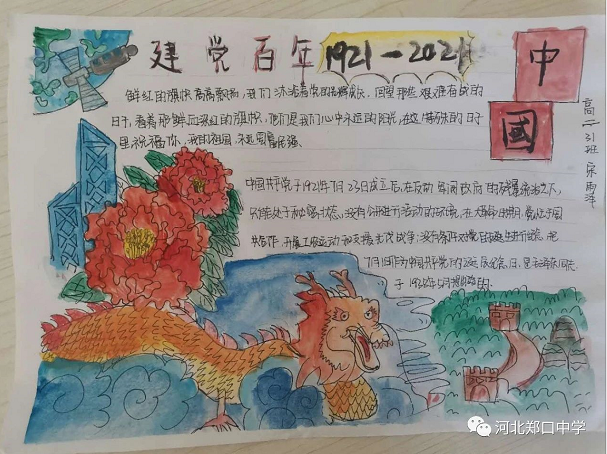 建党百年 1921—2021
中
國
高一31班
鲜红的旗帜高高飘扬，我们沐浴着党的光辉成长，回望那些艰难奋战的
日子，看着那鲜血染红的旗帜，他们是我们心中永远的阳光，在这特殊的日子
里祝福你，我的祖国，永远
中国共产党于1921年7月23日成立后，在反动军阀政府的残暴统治之下，
只能处于秘密状态，没有公开进行活动的环境，在大革命时期
共合作，开展工农运动和支援北伐战争，没有条件对党的诞生进行纪念，把
7月1日作为中国共产党的纪念日，是毛泽东同志
于1938年5月提出的
河北郑口中学